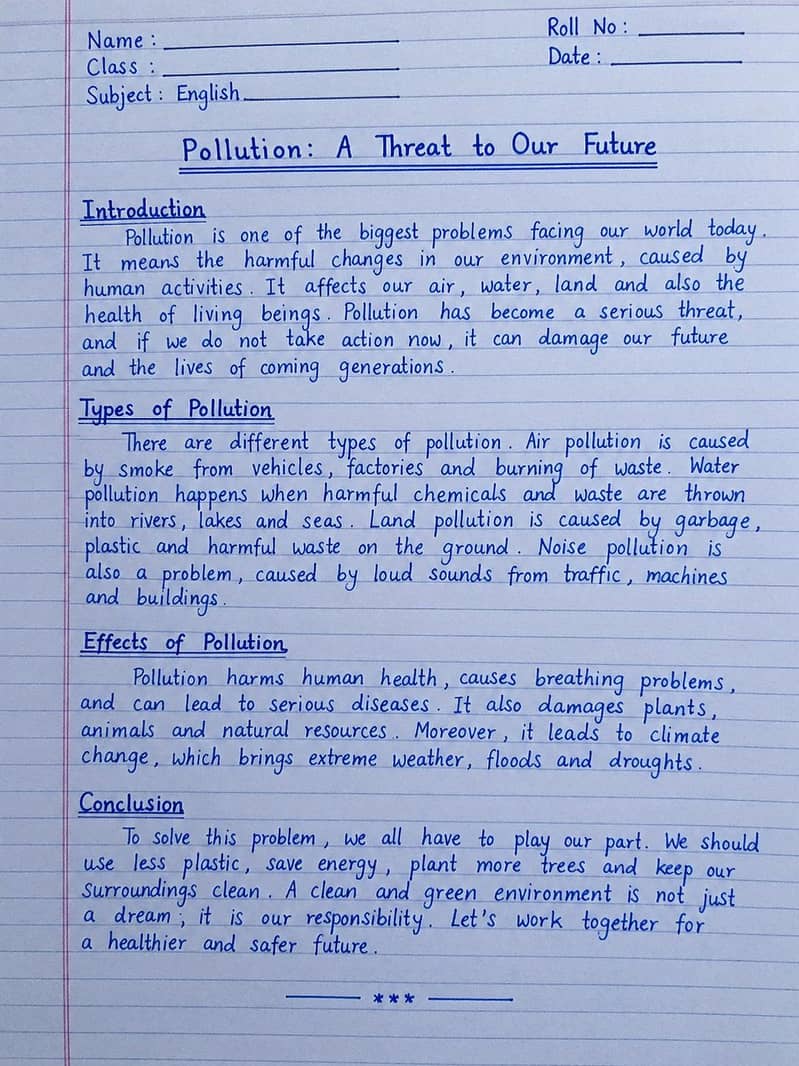 Name : ____________
Roll No : ____________
Class : ____________
Date : ____________
Subject : English ____________
Pollution: A Threat to Our Future
Introduction
Pollution is one of the biggest problems facing our world today.
It means the harmful changes in our environment, caused by
human activities. It affects our air, water, land and also the
health of living beings. Pollution has become a serious threat,
and if we do not take action now, it can damage our future
and the lives of coming generations.
Types of Pollution
There are different types of pollution. Air pollution is caused
by smoke from vehicles, factories and burning of waste. Water
pollution happens when harmful chemicals and waste are thrown
into rivers, lakes and seas. Land pollution is caused by garbage,
plastic and harmful waste on the ground. Noise pollution is
also a problem, caused by loud sounds from traffic, machines
and buildings.
Effects of Pollution
Pollution harms human health, causes breathing problems,
and can lead to serious diseases. It also damages plants,
animals and natural resources. Moreover, it leads to climate
change, which brings extreme weather, floods and droughts.
Conclusion
To solve this problem, we all have to play our part. We should
use less plastic, save energy, plant more trees and keep our
surroundings clean. A clean and green environment is not just
a dream; it is our responsibility. Let's work together for
a healthier and safer future.
— *** —